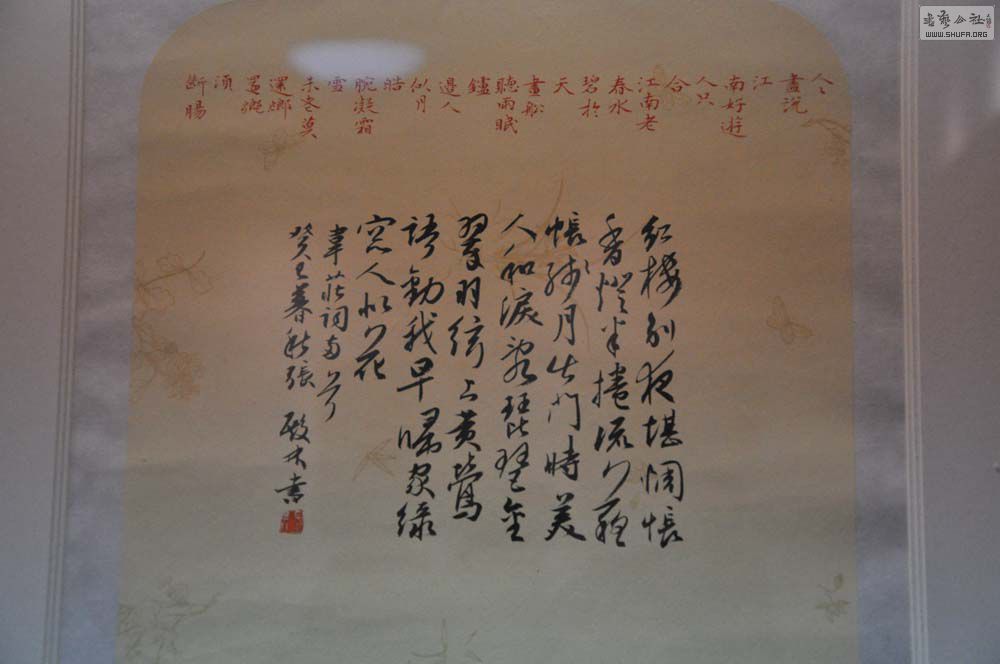 人々
盡說
江
南好遊
人只
合
江南老
春水
碧於
天
畫船
聽雨眠
鑪
邊人
似月
皓
腕凝霜
雪
未老莫
還鄉
還鄉
須
斷腸
紅樓別夜堪惆悵
香燈半捲流蘇
帳殘月出門時美
人和淚辭琵琶金
翠羽絃上黃鶯
語勸我早歸家綠
窓人似花
韋莊詞兩首
癸巳暮秋張殿木書
書藝公社
WWW.SHUFA.ORG